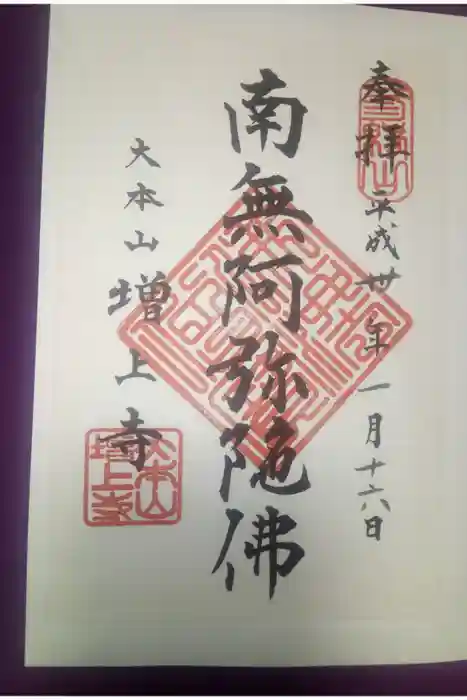 奉拝
平成卅年一月十六日
南無阿弥陀佛
大本山
増上寺
大本山
増上寺